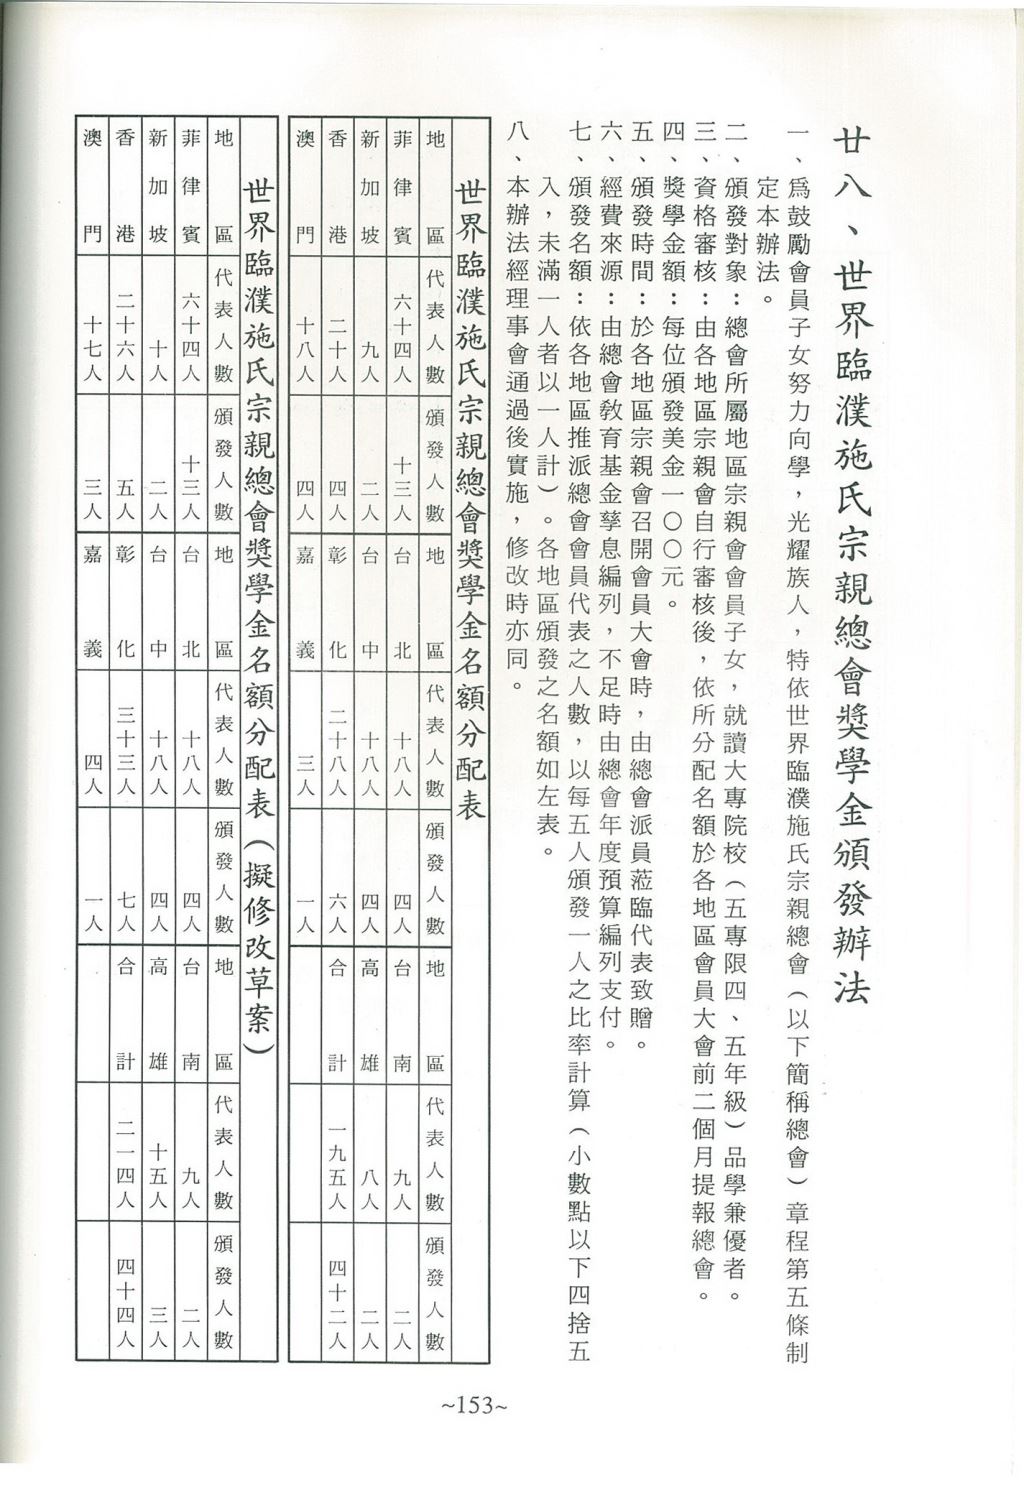 廿八、世界臨濮施氏宗親總會獎學金頒發辦法
一、為鼓勵會員子女努力向學，光耀族人，特依世界臨濮施氏宗親總會（以下簡稱總會）章程第五條制
定本辦法。
二、頒發對象：總會所屬地區宗親會會員子女，就讀大專院校（五專限四、五年級）品學兼優者。
三、資格審核：由各地區宗親會自行審核後，依所分配名額於各地區會員大會前二個月提報總會。
四、獎學金額：每位頒發美金一〇〇元。
五、頒發時間：於各地區宗親會召開會員大會時，由總會派員蒞臨代表致贈。
六、經費來源：由總會教育基金孳息編列，不足時由總會年度預算編列支付。
七、頒發名額：依各地區推派總會會員代表之人數，以每五人頒發一人之比率計算（小數點以下四捨五
入，未滿一人者以一人計）。各地區頒發之名額如左表。
八、本辦法經理事會通過後實施，修改時亦同。
世界臨濮施氏宗親總會獎學金名額分配表
地區 代表人數 頒發人數 地區 代表人數 頒發人數 地區 代表人數 頒發人數
菲律賓 六十四人 十三人 台北 十八人 四人 台南 九人 二人
新加坡 九人 二人 台中 十八人 四人 高雄 八人 二人
香港 二十人 四人 彰化 二十八人 六人 合計 一九五人 四十二人
澳門 十八人 四人 嘉義 三人 一人
世界臨濮施氏宗親總會獎學金名額分配表（擬修改草案）
地區 代表人數 頒發人數 地區 代表人數 頒發人數 地區 代表人數 頒發人數
菲律賓 六十四人 十三人 台北 十八人 四人 台南 九人 二人
新加坡 十人 二人 台中 十八人 四人 高雄 十五人 三人
香港 二十六人 五人 彰化 三十三人 七人 合計 二一四人 四十四人
澳門 十七人 三人 嘉義 四人 一人
~153~